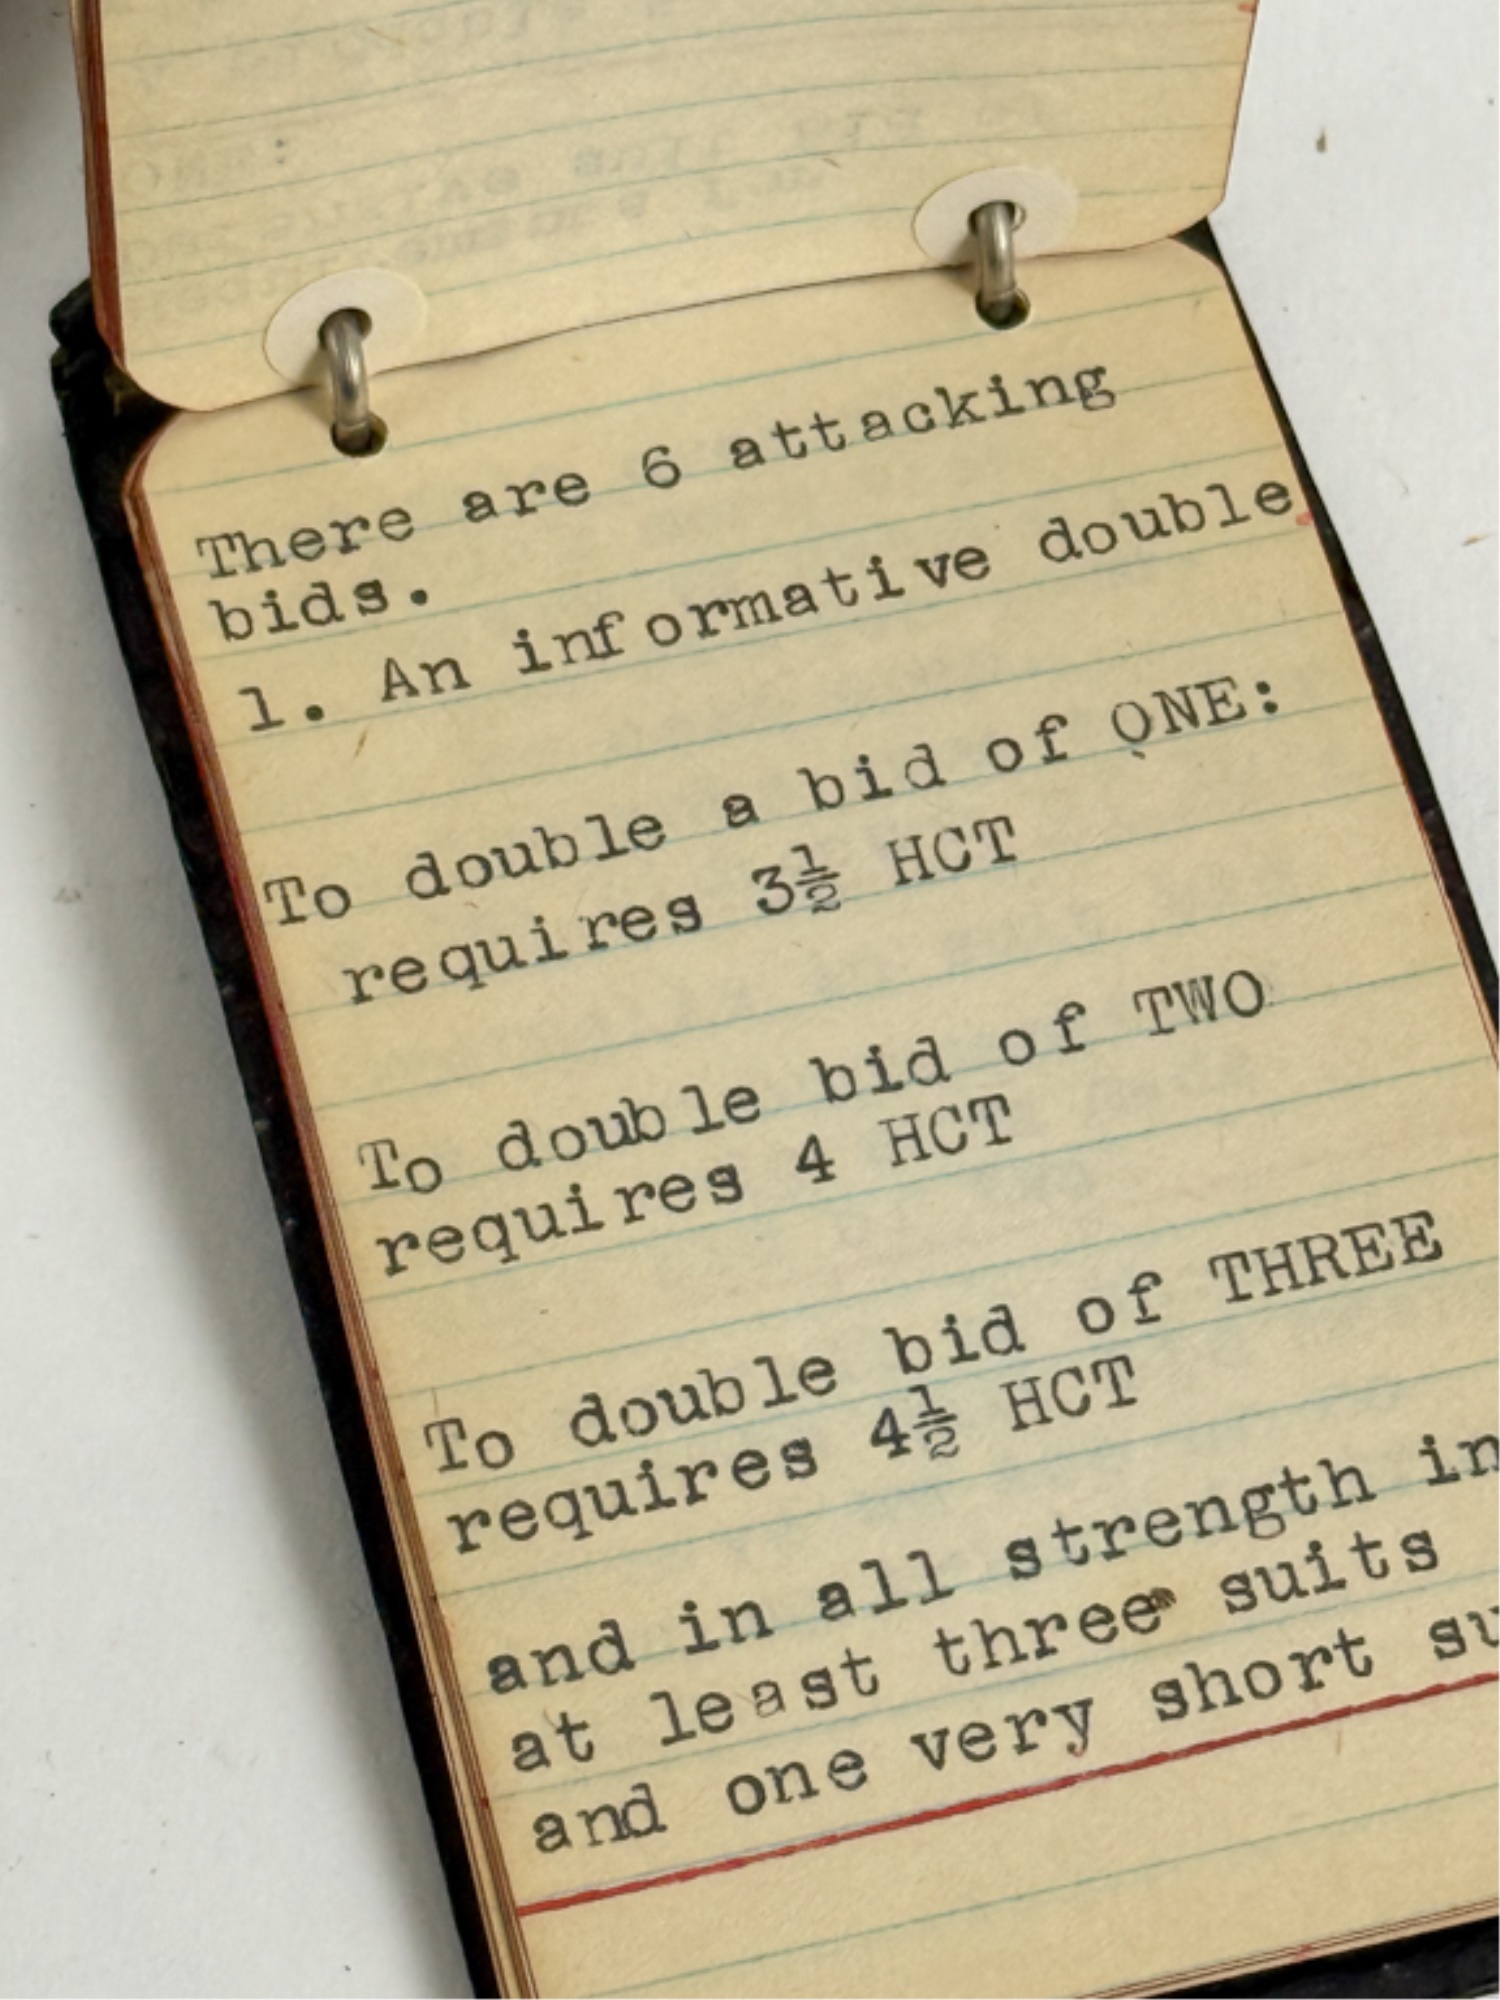 There are 6 attacking
bids.
1. An informative double
To double a bid of ONE:
requires 3½ HCT
To double bid of TWO
requires 4 HCT
To double bid of THREE
requires 4½ HCT
and in all strength in
at least three suits
and one very short su